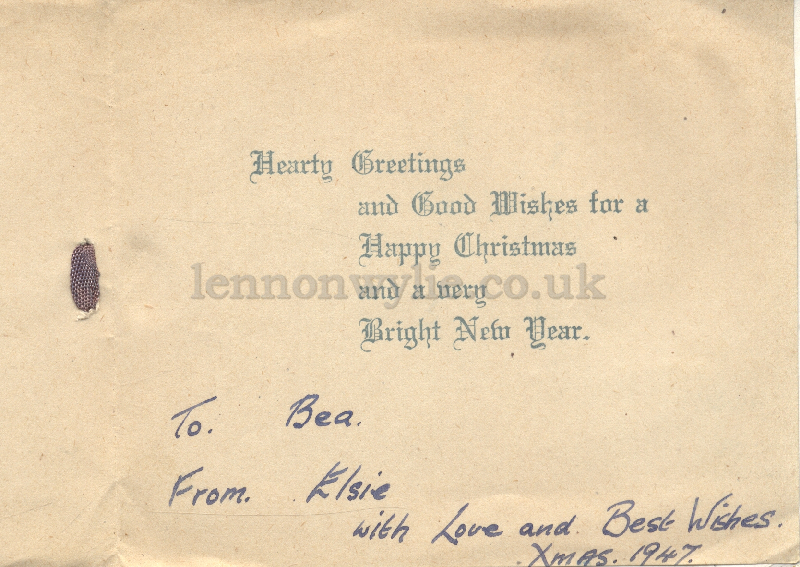 Hearty Greetings
and Good Wishes for a
Happy Christmas
and a very
Bright New Year.
lennonwylie.co.uk
To. Bea.
From. Elsie
with Love and. Best Wishes.
Xmas. 1947.